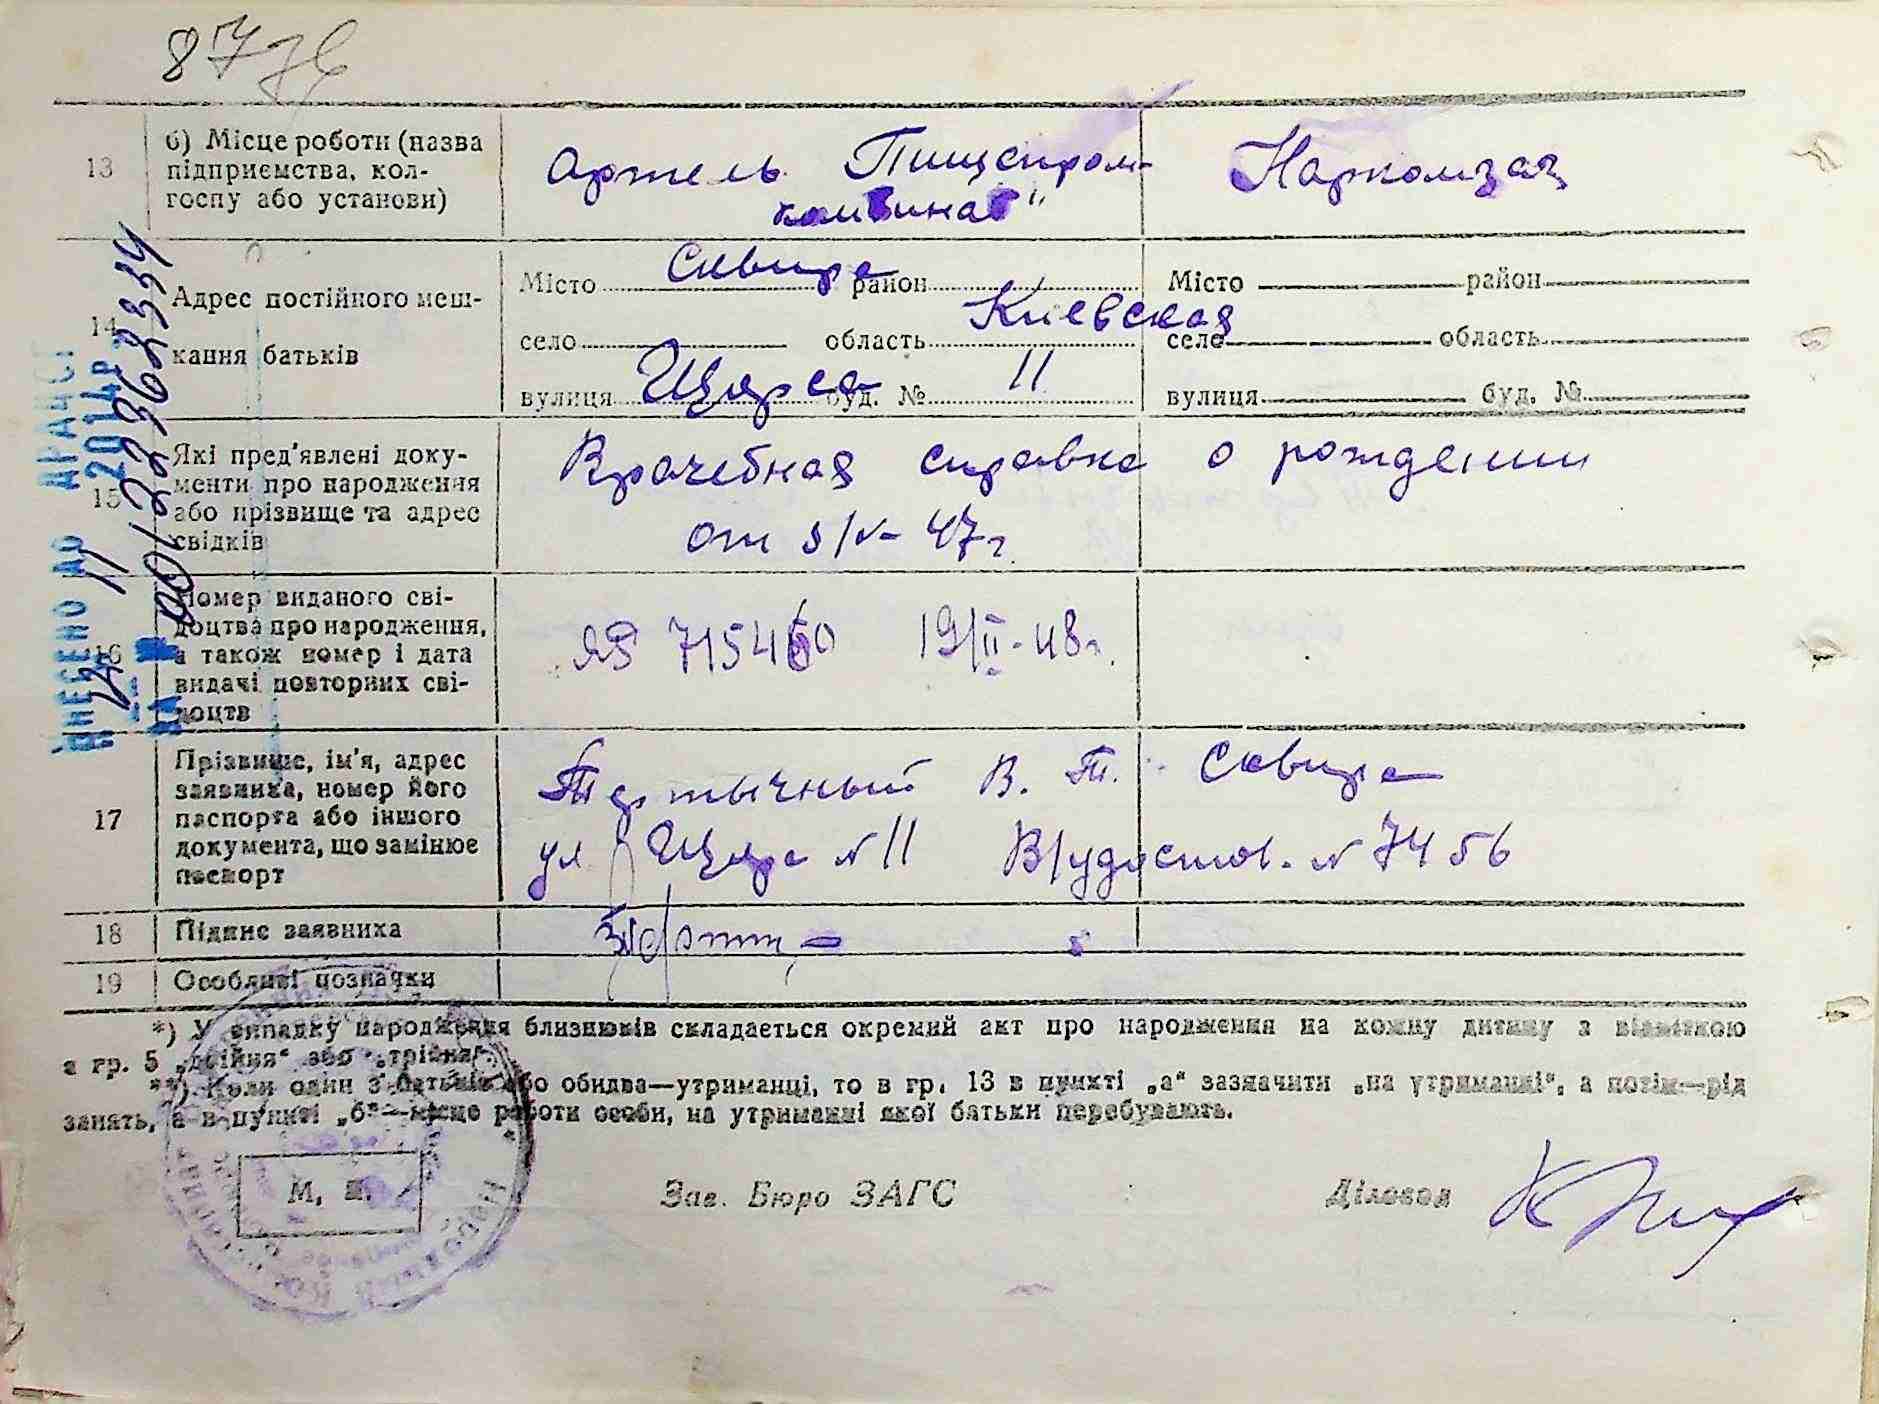 13
б) Місце роботи (назва
підприємства, кол-
госпу або установи)
Артель Пищепром-
комбинат"
14
Адрес постійного меш-
кання батьків
Місто Сквира район
село область Киевская
вулиця Щорса буд. № 11
Місто район
село область
вулиця буд. №
15
Які пред'явлені доку-
менти про народження
або прізвище та адрес
свідків
Врачебная справка о рождении
от 47 г.
16
Номер виданого сві-
доцтва про народження,
а також номер і дата
видачі повторних сві-
доцтв
19/II-48 г.
17
Прізвище, ім'я, адрес
заявника, номер його
паспорта або іншого
документа, що замінює
паспорт
Тертычный В. Т. Сквира
ул Щорса № 11 В/удостов. № 7456
18
Підпис заявника
19
Особливі позначки
*) У випадку народження близнюків складається окремий акт про народження на кожну дитину з відміткою
в гр. 5 „двійня" або „трійня".
**) Коли один з батьків або обидва—утриманці, то в гр. 13 в пункті „а" зазначити „на утриманні", а потім—рід
занять, а в пункті „б"—місце роботи особи, на утриманні якої батьки перебувають.
М. П.
Зав. Бюро ЗАГС
Діловод
ВНЕСЕНО ДО ДРАЦС